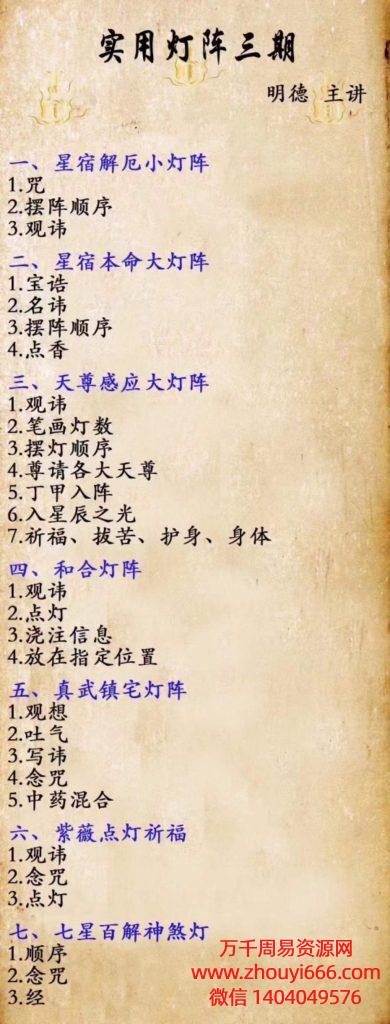 实用灯阵三期
明德 主讲
一、星宿解厄小灯阵
1.咒
2.摆阵顺序
3.观讳
二、星宿本命大灯阵
1.宝诰
2.名讳
3.摆阵顺序
4.点香
三、天尊感应大灯阵
1.观讳
2.笔画灯数
3.摆灯顺序
4.尊请各大天尊
5.丁甲入阵
6.入星辰之光
7.祈福、拔苦、护身、身体
四、和合灯阵
1.观讳
2.点灯
3.浇注信息
4.放在指定位置
五、真武镇宅灯阵
1.观想
2.吐气
3.写讳
4.念咒
5.中药混合
六、紫薇点灯祈福
1.观讳
2.念咒
3.点灯
七、七星百解神煞灯
1.顺序
2.念咒
3.经
万千周易资源网
www.zhouyi666.com
微信 1404049576